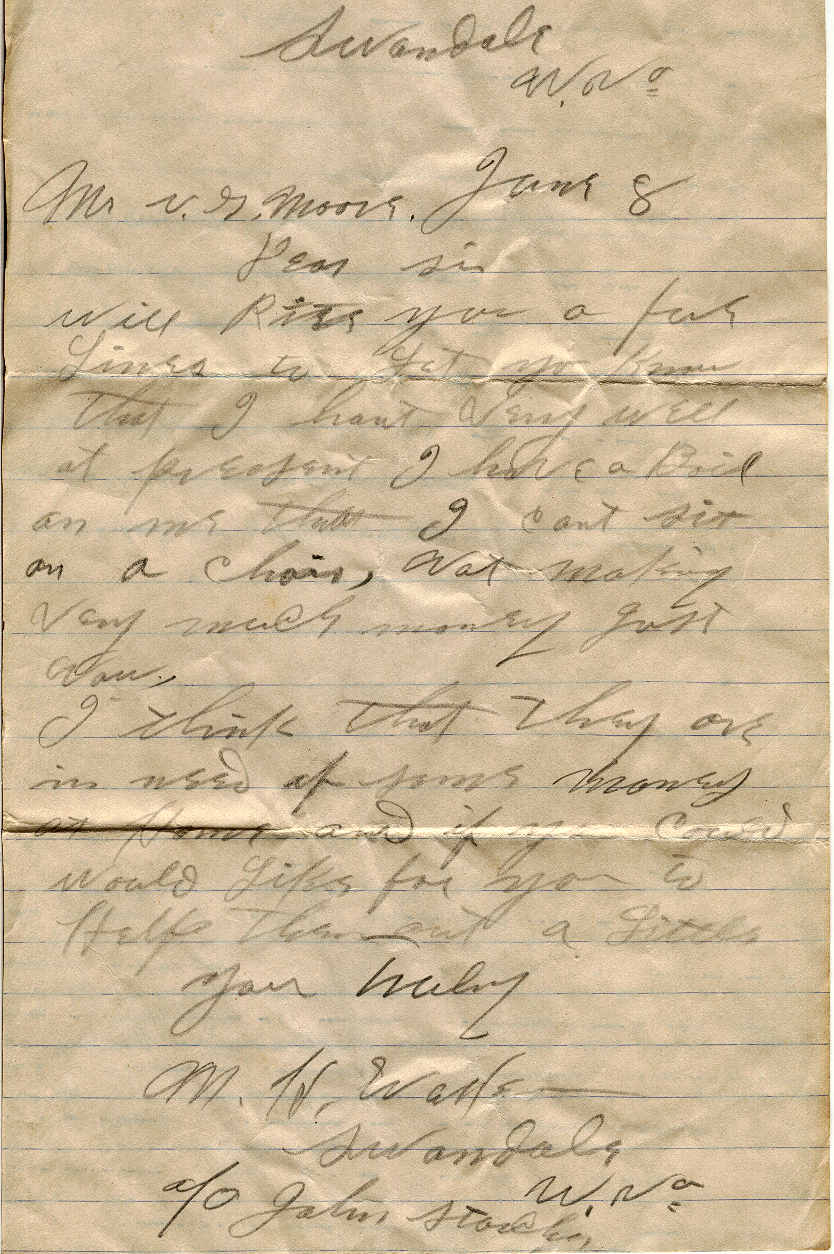 Swandale
W. Va
Mr V. G. Moore. June 8
Dear sir
will Rite you a few
Lines to Let yo know
that I haint Very well
at preasent I have a Boil
on me that I cant sit
on a chair, Not making
Very much money Just
Now,
I think that they are
in need of some money
at Home and if you could
would Like for you to
Help them out a Little
your truly
M. H.
Swandale
W. Va
c/o John